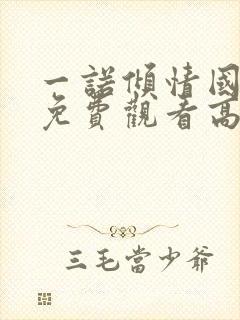 一諾傾情國
免費觀看高
三毛當少爺